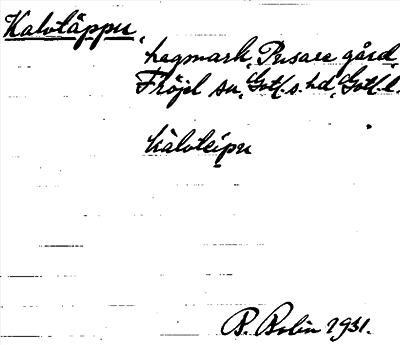 Kalvtäppu,
hagmark, Pusare gård,
Fröjel sn, Gotl. s. hd, Gotl. l.
kàlvtèipu
B. Bolin 1931.